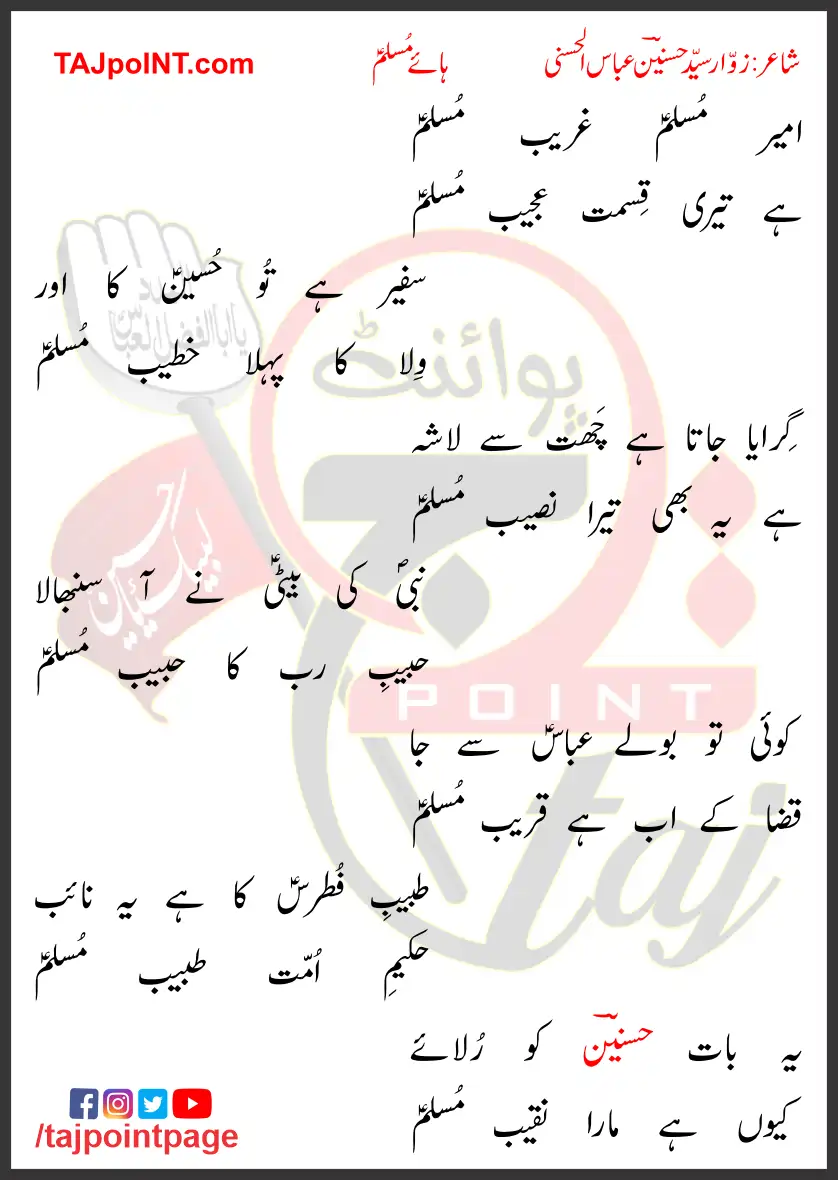 شاعر: زوّار سیّد حسنینؔ عباس الحسنی ہائے مُسلمؑ TAJpoINT.com
امیر مُسلمؑ غریب مُسلمؑ
ہے تیری قِسمت عجیب مُسلمؑ
سفیر ہے تُو حُسینؑ کا اور
وِلا کا پہلا خطیب مُسلمؑ
گِرایا جاتا ہے چَھت سے لاشہ
ہے یہ بھی تیرا نصیب مُسلمؑ
نبیؐ کی بیٹیؑ نے آ سنبھالا
حبیبِ رب کا حبیب مُسلمؑ
کوئی تو بولے عباسؑ سے جا
قضا کے اب ہے قریب مُسلمؑ
طبیبِ فُطرسؑ کا ہے یہ نائب
حکیمِ اُمّت طبیب مُسلمؑ
یہ بات حسنینؔ کو رُلائے
کیوں ہے مارا نقیب مُسلمؑ
/tajpointpage
پوائنٹ
تاج
POINT
taj
یا ابا الفضل العباس
لبیک یا حسین